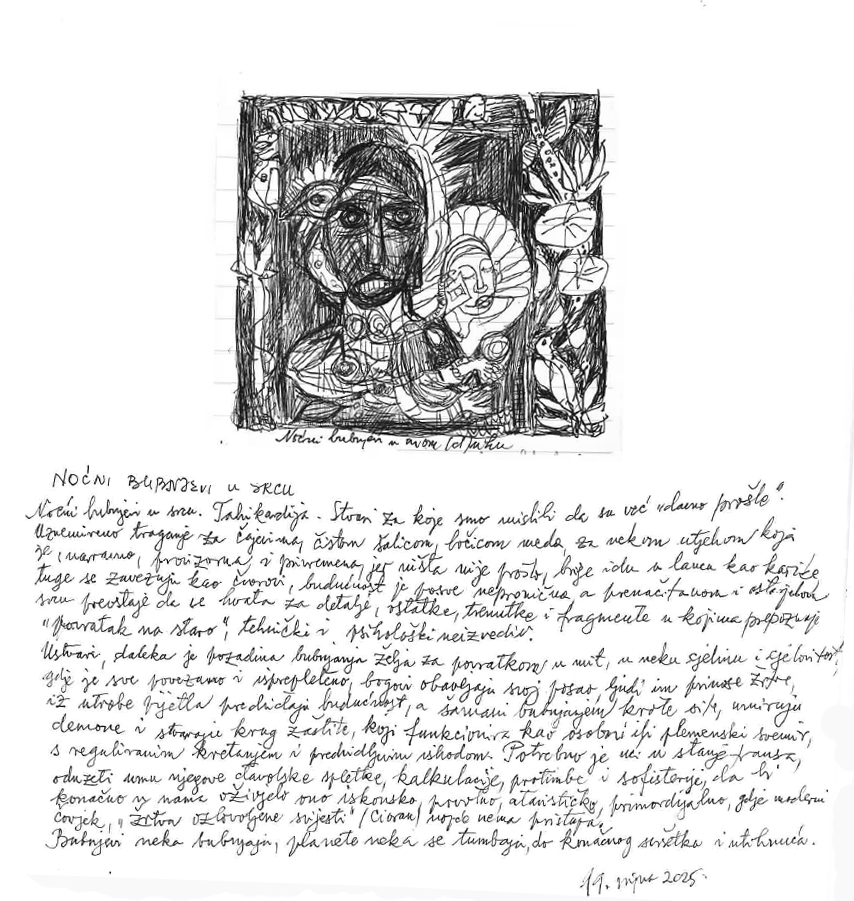 Noćni bubnjevi u ovom
NOĆNI BUBNJEVI U SRCU
Noćni bubnjevi u srcu. Tahikardija. Stvari za koje smo mislili da su već "davno prošle".
Uznemireno traganje za čajevima, čistom šalicom, bočicom meda, za nekom utjehom koja
je, naravno, provizorna i privremena, jer ništa nije prosto, brige idu u lancu kao karike
tuge se zavezuju kao čvorovi, budućnost je posve neprozirna a prenačitanom i ostarjelom
srcu preostaje da se hvata za detalje, ostatke, trenutke i fragmente u kojima prepoznaje
"povratak na staro", tehnički i psihološki neizvediv.
Ustvari, daleka je pozadina bubnjanja želja za povratkom u mit, u neku cjelinu i cjelovitost,
gdje je sve povezano i isprepleteno, bogovi obavljaju svoj posao, ljudi im prinose žrtve,
iz utrobe pijetla predviđaju budućnost, a šamani bubnjanjem krote sile, umiruju
demone i stvaraju krug zaštite, koji funkcionira kao osobni ili plemenski svemir,
s reguliranim kretanjem i predvidljivim ishodom. Potrebno je ući u stanje transa,
oduzeti umu njegove đavolske spletke, kalkulacije, protimbe i sofisterije, da bi
konačno u nama oživjelo ono iskonsko, prvotno, atavističko, primordijalno, gdje moderni
čovjek, "žrtva ozlovoljene svijesti" (Cioran) uopće nema pristupa.
Bubnjevi neka bubnjaju, planete neka se tumbaju, do konačnog svršetka i utihnuća.
19. rujna 2025.